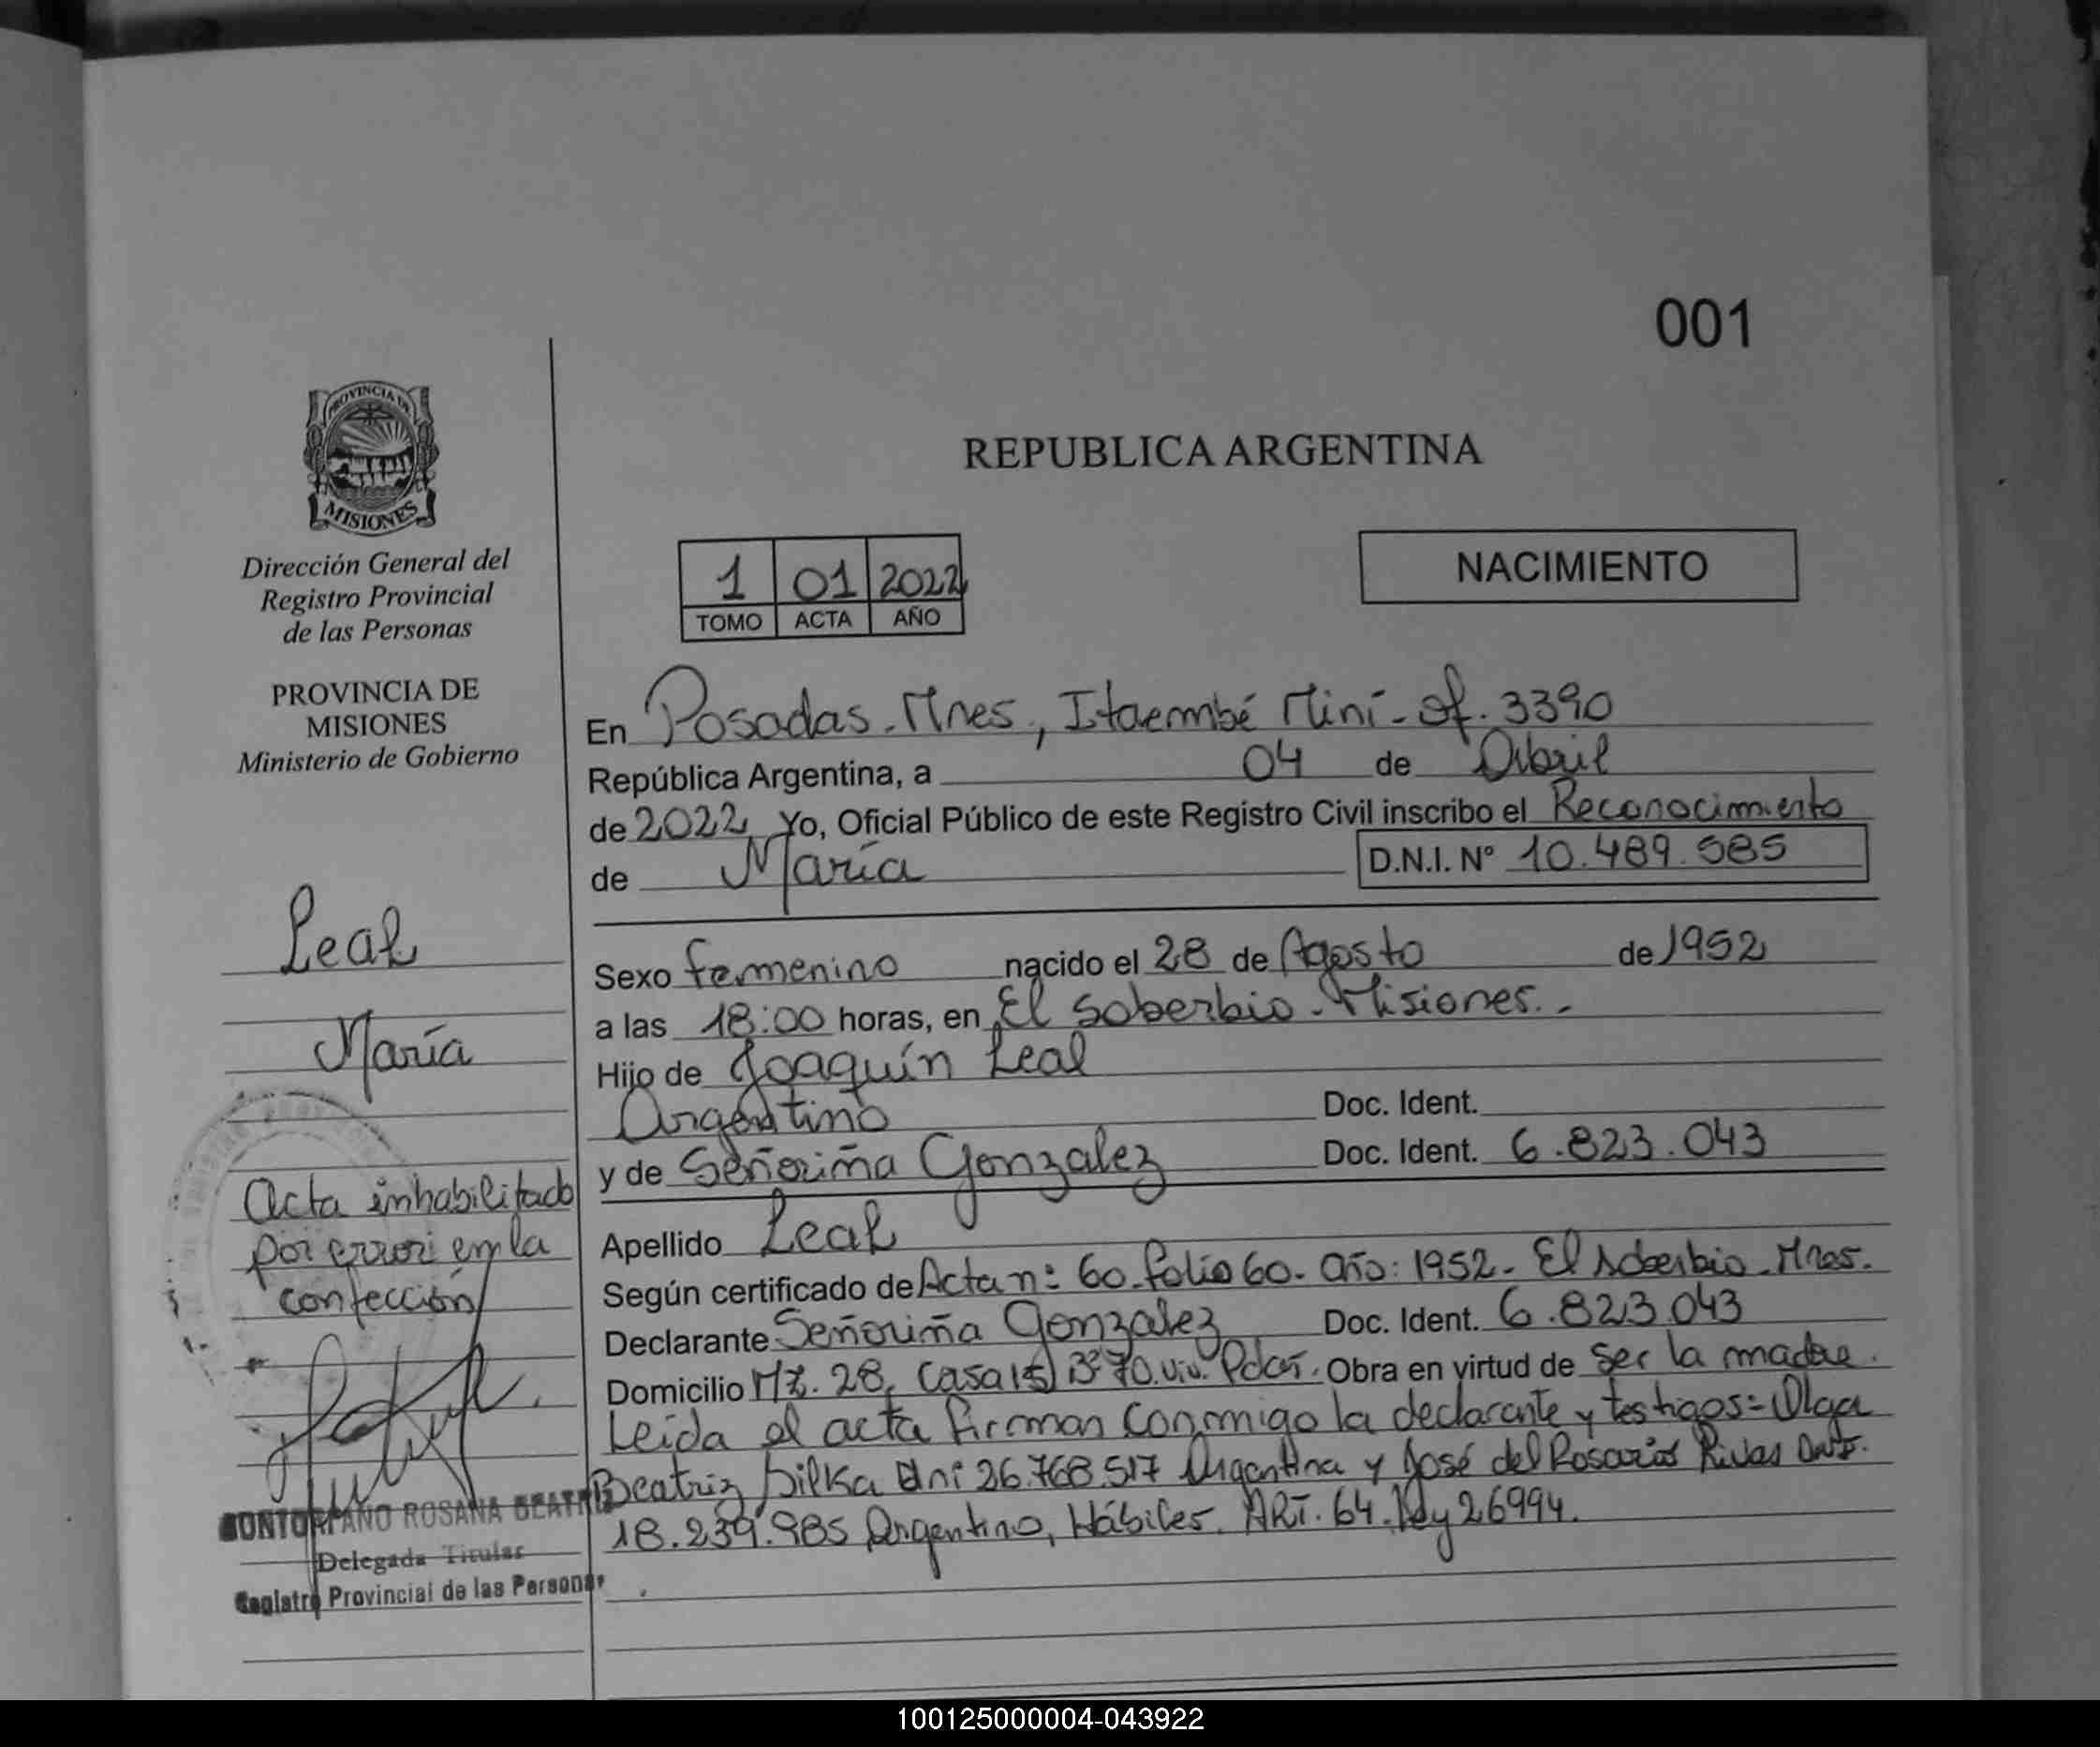 001
PROVINCIA DE
MISIONES
Dirección General del
Registro Provincial
de las Personas
PROVINCIA DE
MISIONES
Ministerio de Gobierno
Leal
María
Acta inhabilitado
por error en la
confección
MONTORFANO ROSANA BEATRIZ
Delegada Titular
Registro Provincial de las Personas
REPUBLICA ARGENTINA
1 01 2022
TOMO ACTA AÑO
NACIMIENTO
En Posadas. Mnes, Itaembé Miní - of. 3390
República Argentina, a 04 de Abril
de 2022 Yo, Oficial Público de este Registro Civil inscribo el Reconocimiento
de María D.N.I. N° 10.489.585
Sexo Femenino nacido el 28 de Agosto de 1952
a las 18:00 horas, en El Soberbio - Misiones. -
Hijo de Joaquín Leal
Argentino Doc. Ident.
y de Señoriña Gonzalez Doc. Ident. 6.823.043
Apellido Leal
Según certificado de Acta n: 60. folio 60. Año: 1952. El Soberbio. Mnes.
Declarante Señoriña Gonzalez Doc. Ident. 6.823.043
Domicilio Mz. 28, Casa 15 B° 70. viv. Obra en virtud de Ser la madre.
Leída el acta firman conmigo la declarante y testigos: Olga
Beatriz Silka dni 26.768.517 Argentina y José del Rosario Rivas
18.239.985 Argentino, Hábiles. ART. 64. Ley 26994.
100125000004-043922